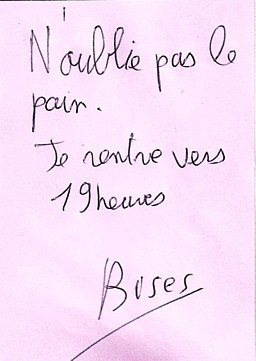 N'oublie pas le
pain.
Je rentre vers
19heures
Bises